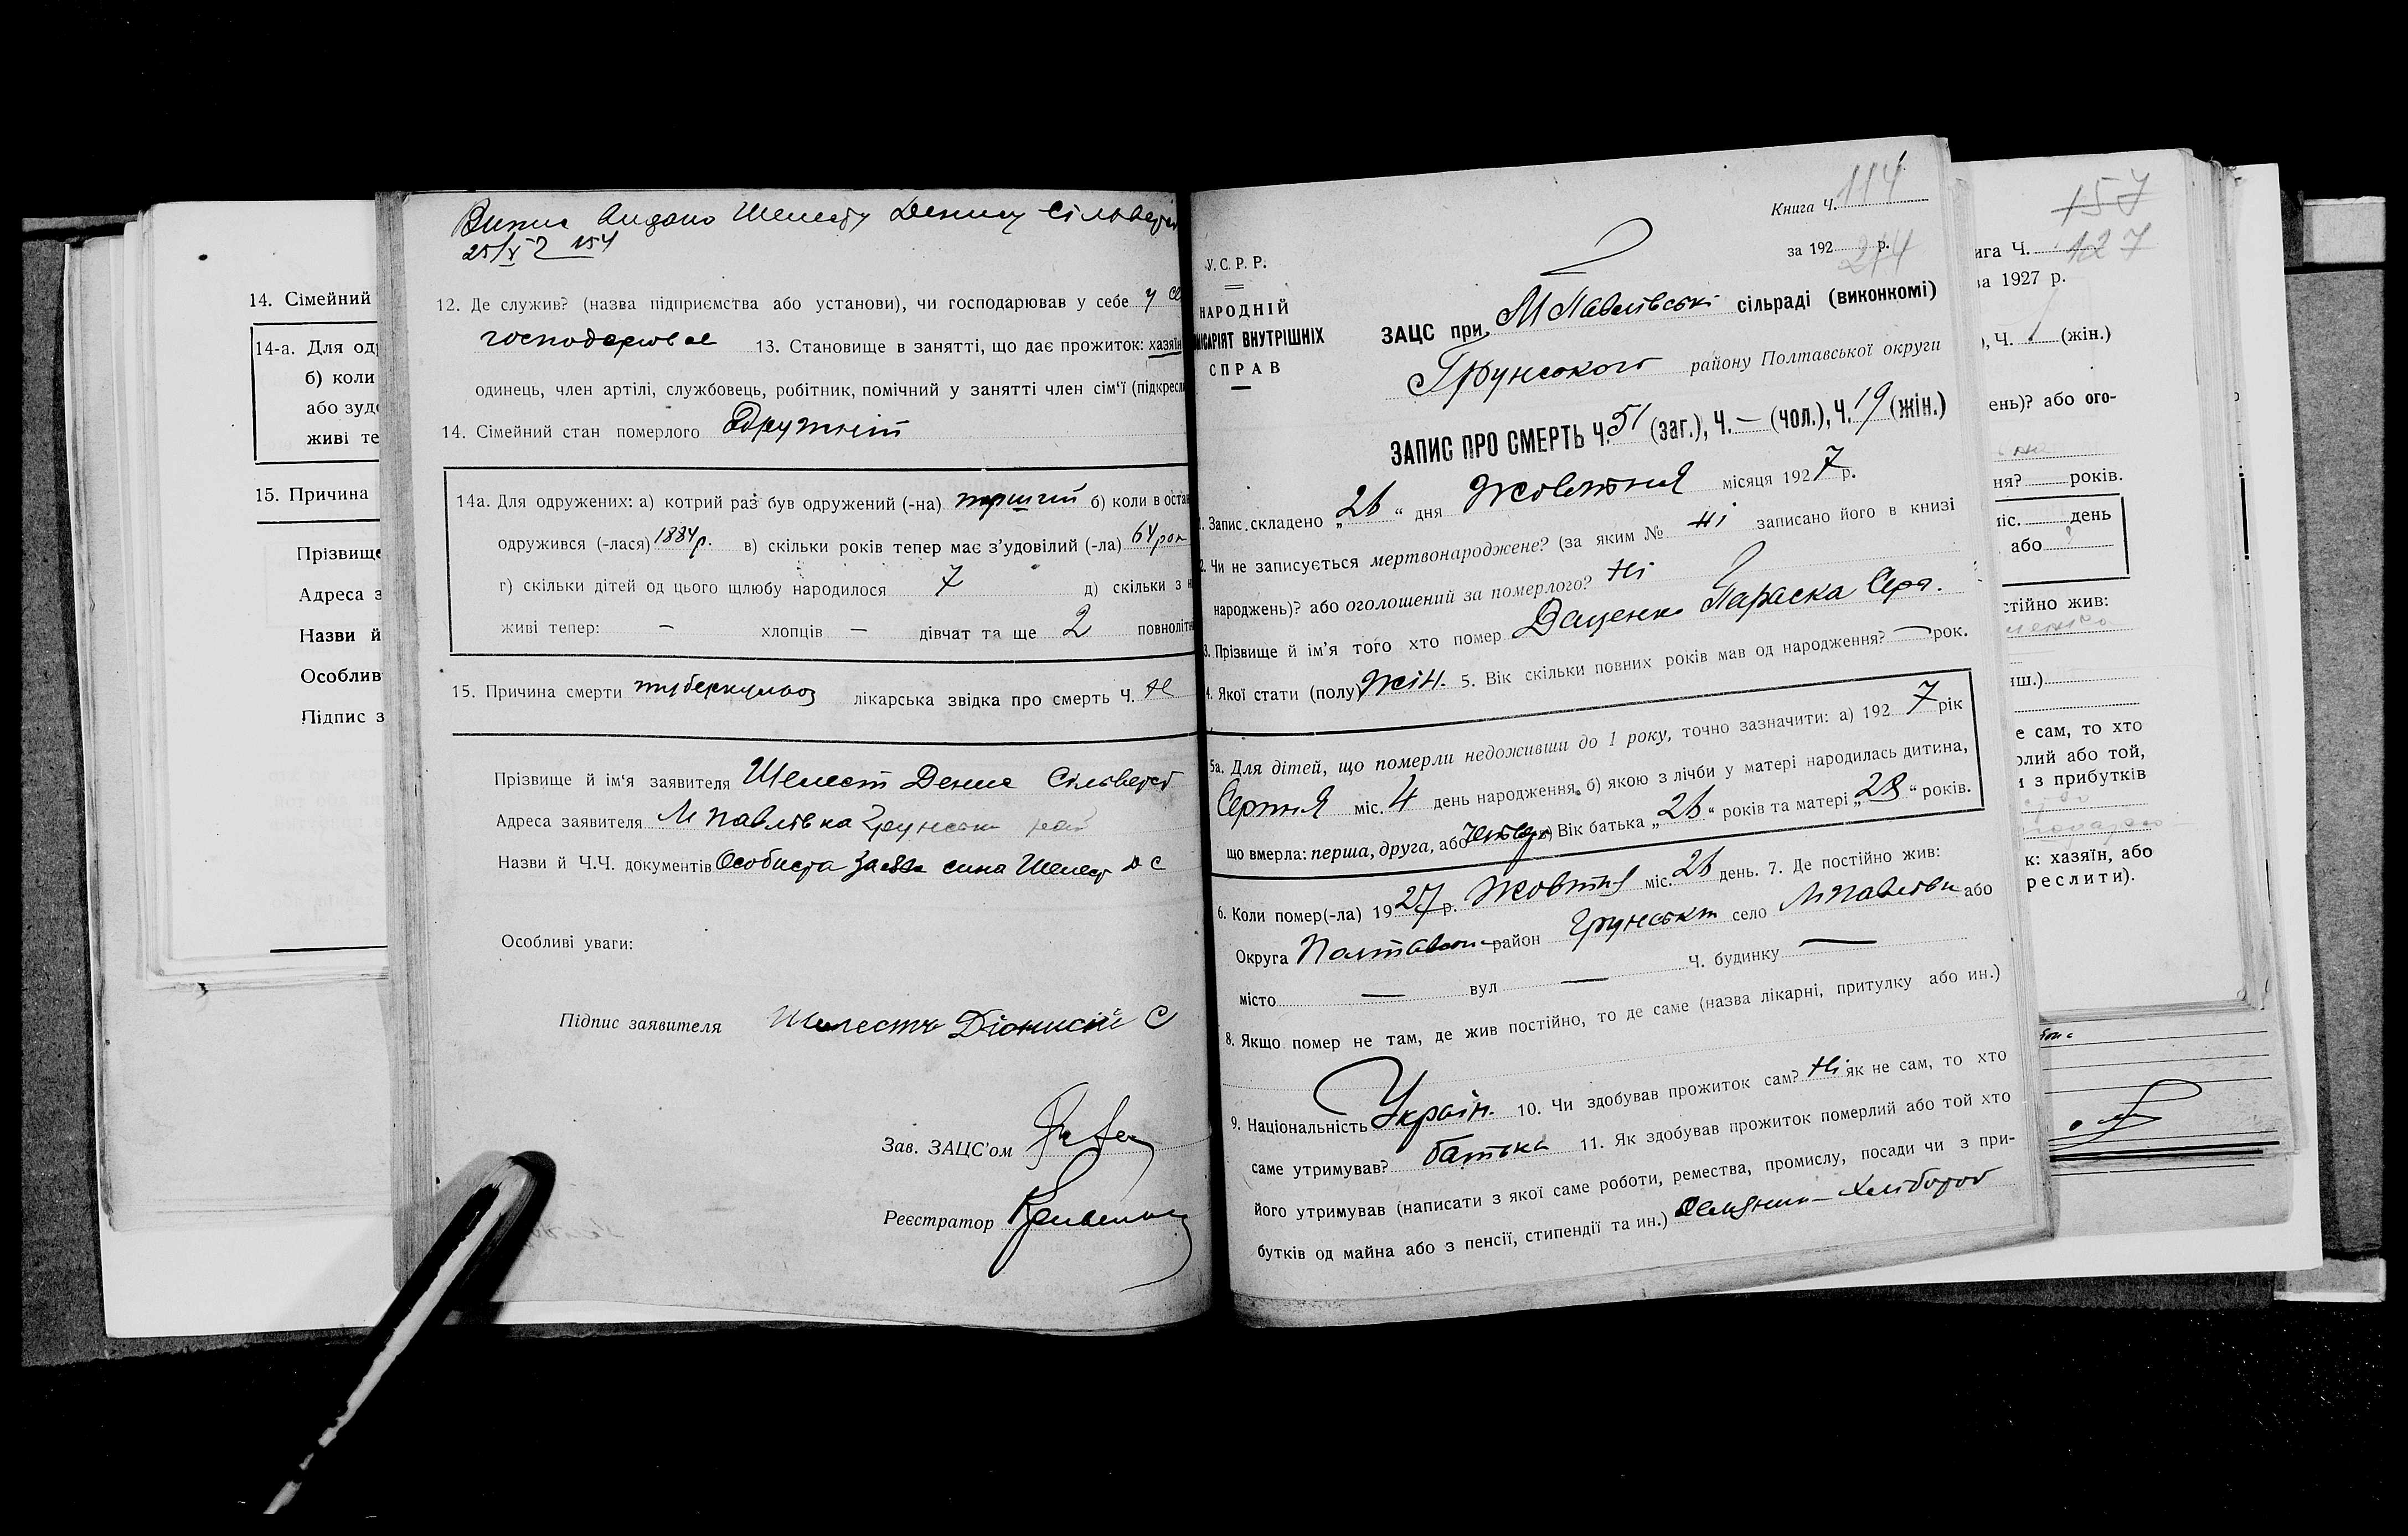 14. Сімейний
14-а. Для од
б) коли
або зуд
живі те
15. Причина
Прізвище
Адреса з
Назви й
Особлив
Підпис з
Випис видано Шелесту Денису Сільвест
25/X 2 154
12. Де служив? (назва підприємства або установи), чи господарював у себе у се
господарював 13. Становище в занятті, що дає прожиток: хазяїн
одинець, член артілі, службовець, робітник, помічний у занятті член сім'ї (підкресли
14. Сімейний стан померлого Одружений
14а. Для одружених: а) котрий раз був одружений (-на) перший б) коли в остан
одружився (-лася) 1884 р. в) скільки років тепер має з'удовілий (-ла) 64 рок
г) скільки дітей од цього щлюбу народилося 7 д) скільки з н
живі тепер: — хлопців — дівчат та ще 2 повноліт
15. Причина смерти туберкульоз лікарська звідка про смерть Ч. Не
Прізвище й ім'я заявителя Шелест Денис Сільвест
Адреса заявителя М Павлівка Грунськ рай
Назви й Ч.Ч. документів Особиста заява сина Шелест Д С
Особливі уваги:
Підпис заявителя Шелестъ Діонисій С
Зав. ЗАЦС'ом
Реєстратор
Книга Ч. 114
за 192 р. 214
У. С. Р. Р.
НАРОДНІЙ
МІСАРІЯТ ВНУТРІШНІХ
СПРАВ
ЗАЦС при М Павлівські сільраді (виконкомі)
Грунського району Полтавської округи
ЗАПИС ПРО СМЕРТЬ Ч. 51 (заг.), Ч. — (чол.), Ч. 19 (жін.)
1. Запис складено „26“ дня Жовтня місяця 1927 р.
2. Чи не записується мертвонароджене? (за яким № Ні записано його в книзі
народжень)? або оголошений за померлого? Ні
3. Прізвище й ім'я того хто помер Даценко Параска Серг.
4. Якої стати (полу) Жін. 5. Вік скільки повних років мав од народження? — рок.
5а. Для дітей, що померли недоживши до 1 року, точно зазначити: а) 192 7 рік
Серпня міс. 4 день народження, б) якою з лічби у матері народилась дитина,
що вмерла: перша, друга, або четверт в) Вік батька „26“ років та матері „28“ років.
6. Коли помер(-ла) 1927 р. Жовтня міс. 26 день. 7. Де постійно жив:
Округа Полтавськ район Грунськ село М Павлівк або
місто — вул — Ч. будинку —
8. Якщо помер не там, де жив постійно, то де саме (назва лікарні, притулку або ин.)
9. Національність Україн. 10. Чи здобував прожиток сам? Ні як не сам, то хто
саме утримував? батьки 11. Як здобував прожиток померлий або той хто
його утримував (написати з якої саме роботи, ремества, промислу, посади чи з при-
бутків од майна або з пенсії, стипендії та ин.) Селянин - Хлібороб
157
ига Ч. 127
за 1927 р.
), Ч. 1 (жін.)
ень)? або ого-
ня? років.
міс. день
або
стійно жив:
иш.)
е сам, то хто
олий або той,
и з прибутків
к: хазяїн, або
реслити).